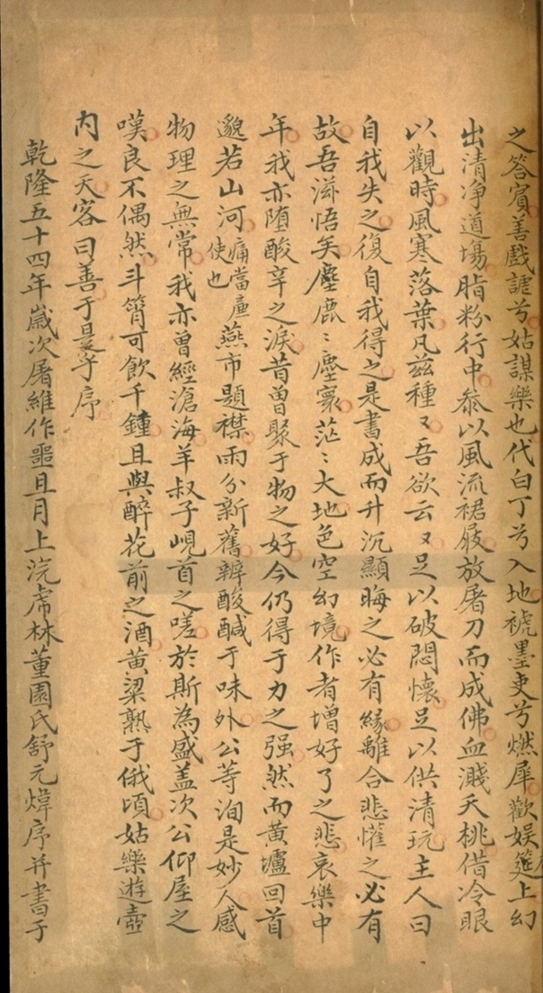 之答賓善戲謔兮姑謀樂也代白丁兮入地褫墨吏兮燃犀歡娛筵上幻
出清淨道場脂粉行中參以風流裙屐放屠刀而成佛血濺天桃借冷眼
以觀時風寒落葉凡茲種々吾欲云々足以破悶懷足以供清玩主人曰
自我失之復自我得之是書成而升沉顯晦之必有緣離合悲懽之必有
故吾滋悟矣塵鹿〻塵寰茫〻大地色空幻境作者增好了之悲哀樂中
年我亦墮酸辛之淚昔曾聚于物之好今仍得于力之强然而黃壚回首
邈若山河痛當廬使也燕市題襟雨分新舊辨酸鹹于味外公等洵是妙人感
物理之無常我亦曾經滄海羊叔子峴首之嗟於斯為盛盖次公仰屋之
嘆良不偶然斗筲可飲千鍾且與醉花前之酒黃粱熟于俄頃姑樂遊壺
內之天客曰善于是乎序
乾隆五十四年歲次屠維作噩且月上浣虎林董園氏舒元煒序并書于